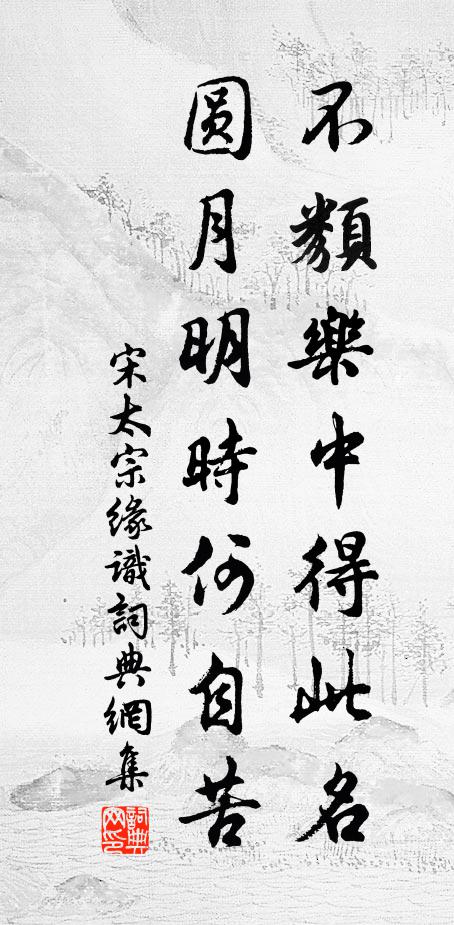 不類樂中得此名
圓月明時何自苦
宋太宗緣識詞典網集
詞典網印